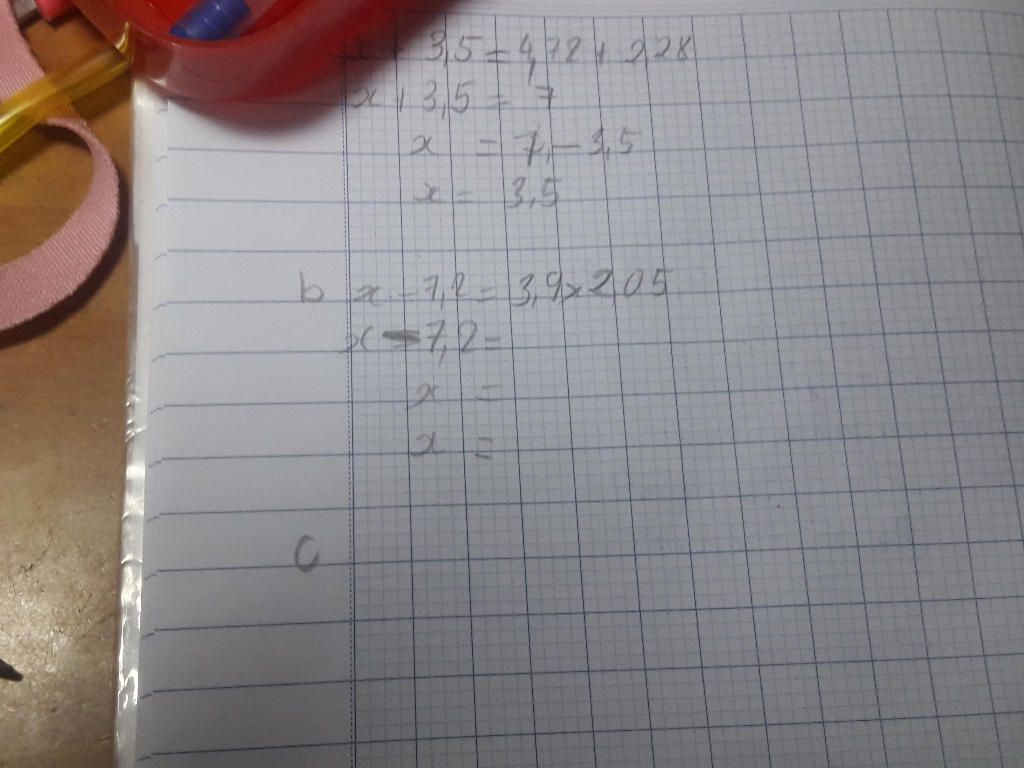 x + 3,5 = 4,72 + 2,28
x + 3,5 = 7
x = 7, - 3,5
x = 3,5
b x - 7,2 = 3,9 x 2,05
x - 7,2 =
x =
x =
C